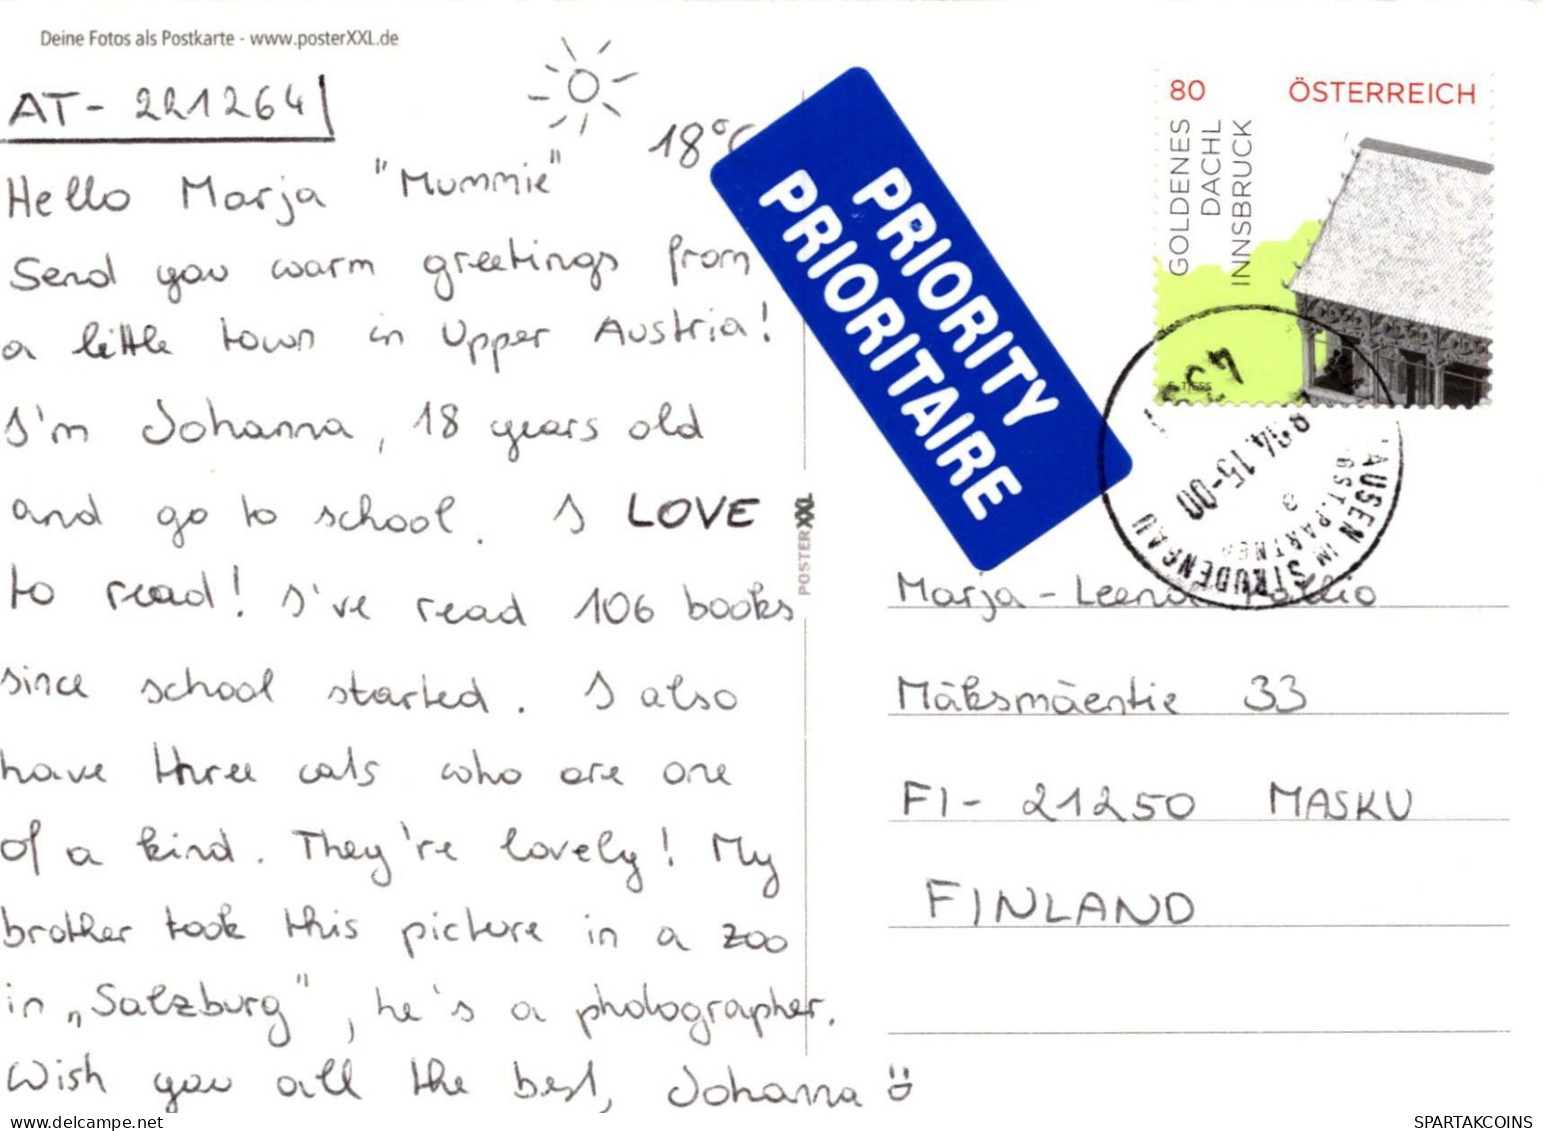 Deine Fotos als Postkarte - www.posterXXL.de
AT - 221264
18°C
Hello Marja "Mummie"
Send you warm greetings from
a little town in Upper Austria!
I'm Johanna, 18 years old
and go to school. I LOVE
to read! I've read 106 books
since school started. I also
have three cats who are one
of a kind. They're lovely! My
brother took this picture in a zoo
in „Salzburg", he's a photographer.
Wish you all the best, Johanna
POSTERXXL
PRIORITY
PRIORITAIRE
80 ÖSTERREICH
GOLDENES
DACHL
INNSBRUCK
E. TIESS
14.15-00
AUSEN IM STRUDENGAU
PGST.PARTNER
Marja - Leena
Mäksmäentie 33
FI - 21250 MASKU
FINLAND
SPARTAKCOINS